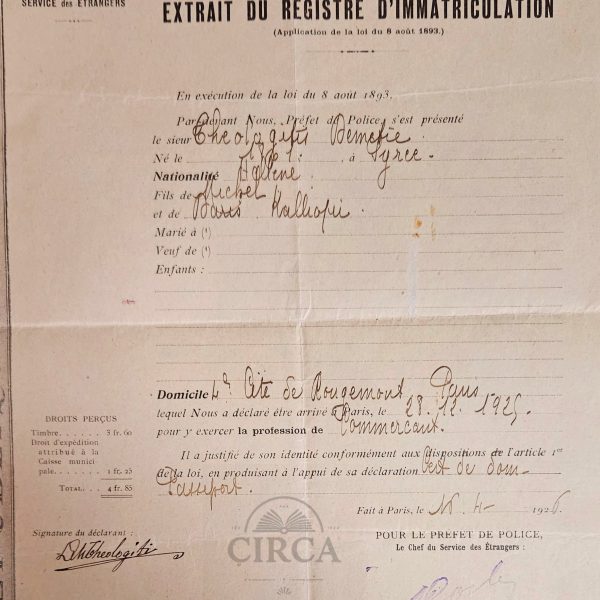 SERVICE des ÉTRANGERS
EXTRAIT DU REGISTRE D'IMMATRICULATION
(Application de la loi du 8 août 1893.)
En exécution de la loi du 8 août 1893.
Par-devant Nous, Préfet de Police, s'est présenté
le sieur Théologitis Démétre
Né le à Syree
Nationalité Hélène
Fils de Michel
et de Kalliopi
Marié à (1)
Veuf de (1)
Enfants :
Domicile 4 Cité de Rougemont Paris
lequel Nous a déclaré être arrivé à Paris, le 28.12.1925
pour y exercer la profession de Commerçant.
Il a justifié de son identité conformément aux dispositions de l'article 1er
de la loi, en produisant à l'appui de sa déclaration Cert de dom-
Passeport
Fait à Paris, le 16-4- 1926
DROITS PERÇUS
Timbre 3 fr. 60
Droit d'expédition
attribué à la
Caisse munici
pale 1 fr. 25
TOTAL 4 fr. 85
Signature du déclarant :
DMTheologiti
POUR LE PREFET DE POLICE,
Le Chef du Service des Étrangers :
CIRCA